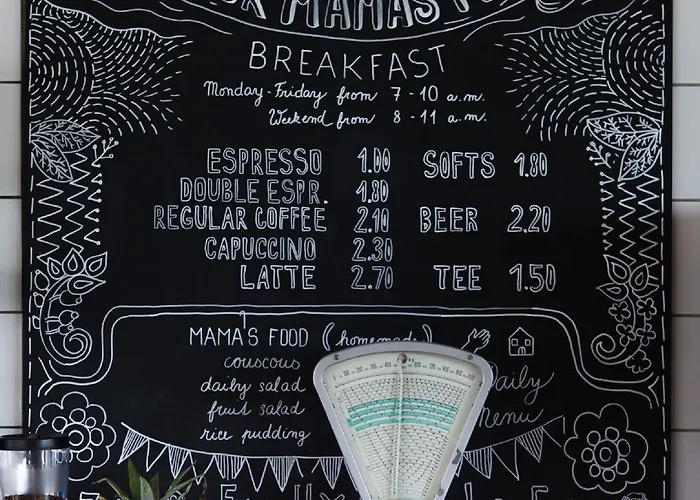 MAMAS
BREAKFAST
Monday-Friday from 7-10 a.m.
Weekend from 8-11 a.m.
ESPRESSO 1.00 SOFTS 1.80
DOUBLE ESPR. 1.80
REGULAR COFFEE 2.10 BEER 2.20
CAPUCCINO 2.30
LATTE 2.70 TEE 1.50
MAMA'S FOOD (homemade)
couscous
daily salad Daily
fruit salad Menu
rice pudding